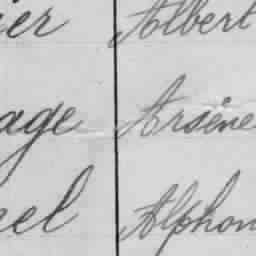 ier Albert
age Arsène
el Alphon